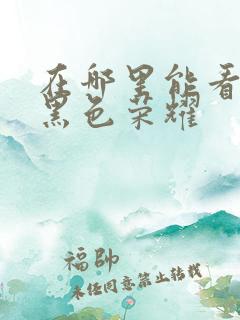 在哪里能看
黑色荣耀
福帥
未经同意禁止转载